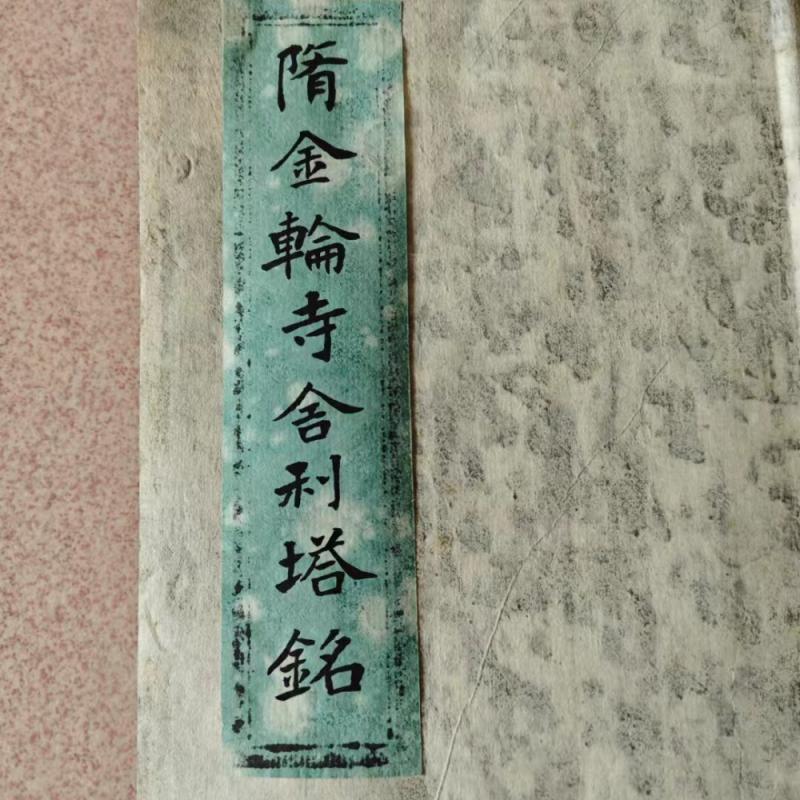 隋金輪寺舍利塔銘